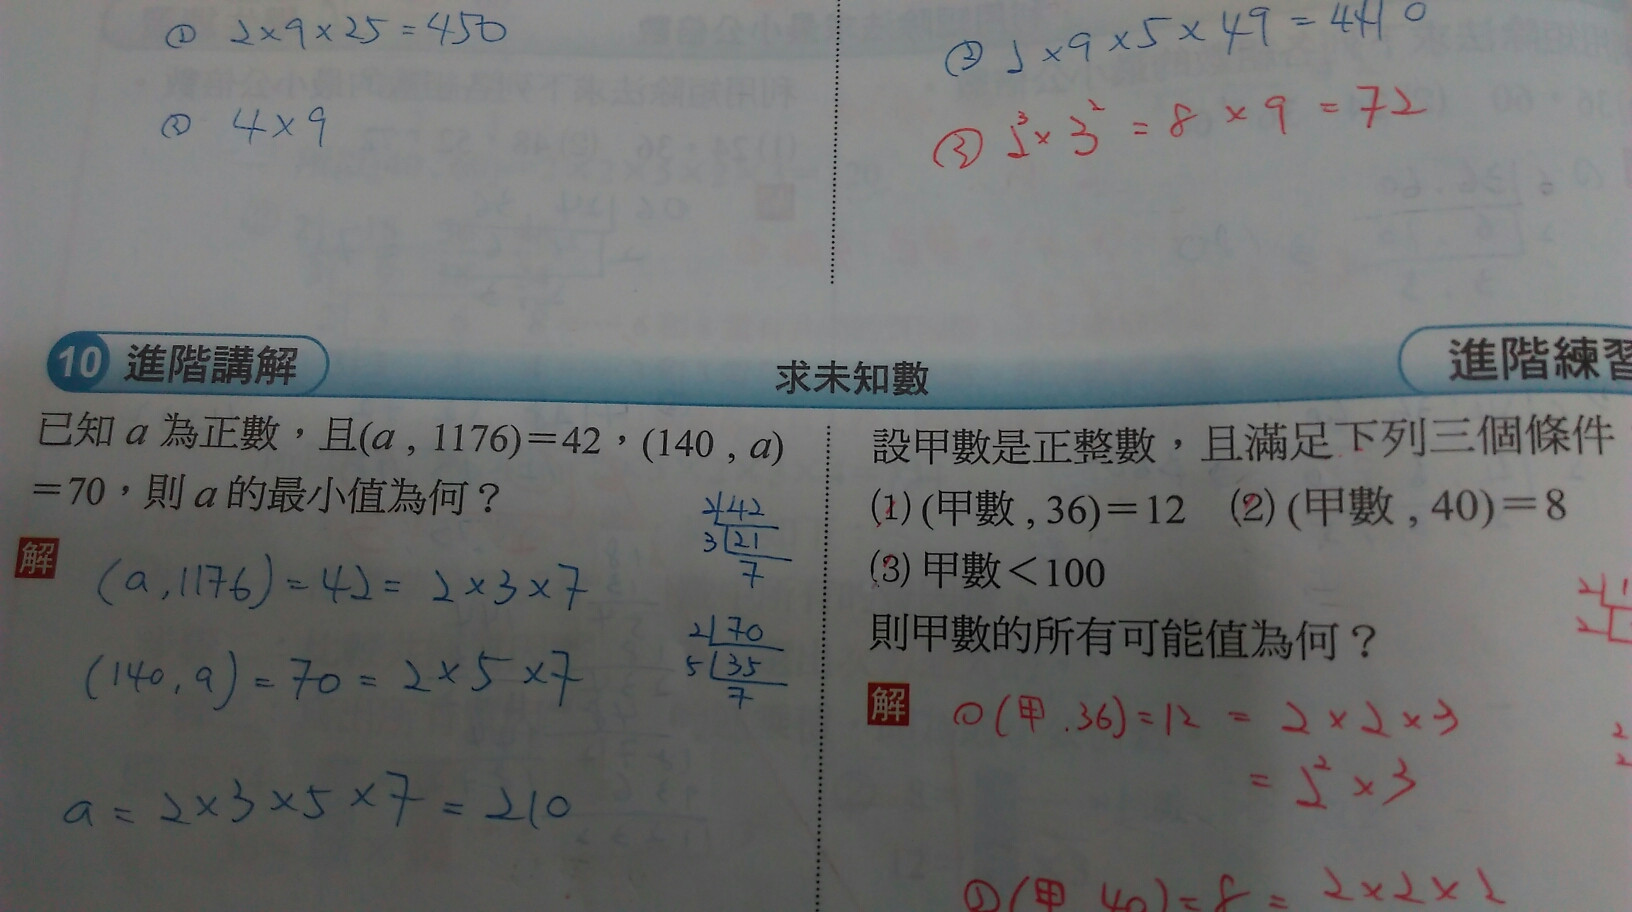 ① 2×9×25=450
② 4×9
② 2×9×5×49=4410
③ 2³×3²=8×9=72
10 進階講解
求未知數
進階練習
已知 a 為正數，且(a , 1176)＝42，(140 , a)
＝70，則 a 的最小值為何？
2 42
3 21
7
解
(a,1176)=42=2×3×7
2 70
5 35
7
(140,a)=70=2×5×7
a=2×3×5×7=210
設甲數是正整數，且滿足下列三個條件
⑴ (甲數 , 36)＝12 ⑵ (甲數 , 40)＝8
⑶ 甲數＜100
則甲數的所有可能值為何？
解
①(甲.36)=12=2×2×3
=2²×3
②(甲 40)=8=2×2×2